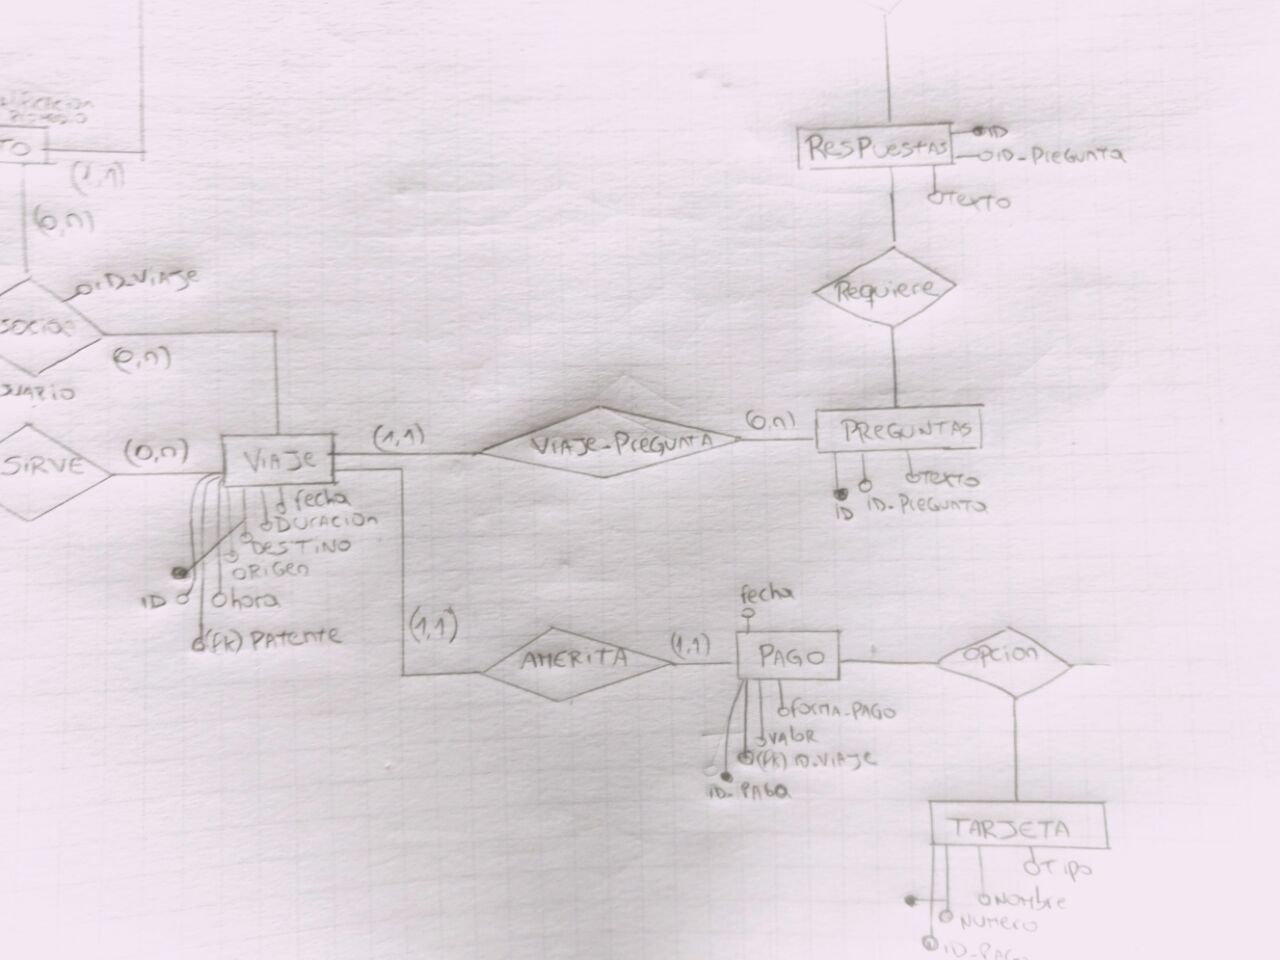 TO
(1,1)
(0,n)
ID_VIAJE
(0,n)
SIRVE
(0,n)
VIAJE
fecha
DURACION
DESTINO
ORIGEN
ID
hora
(FK) PATENTE
(1,1)
VIAJE-PREGUNTA
(0,n)
PREGUNTAS
TEXTO
ID
ID-PREGUNTA
Requiere
RESPUESTAS
ID
ID-PREGUNTA
TEXTO
(1,1)
AMERITA
(1,1)
fecha
PAGO
FORMA-PAGO
VALOR
(FK) ID-VIAJE
ID-PAGO
OPCION
TARJETA
TIPO
NOMBRE
NUMERO